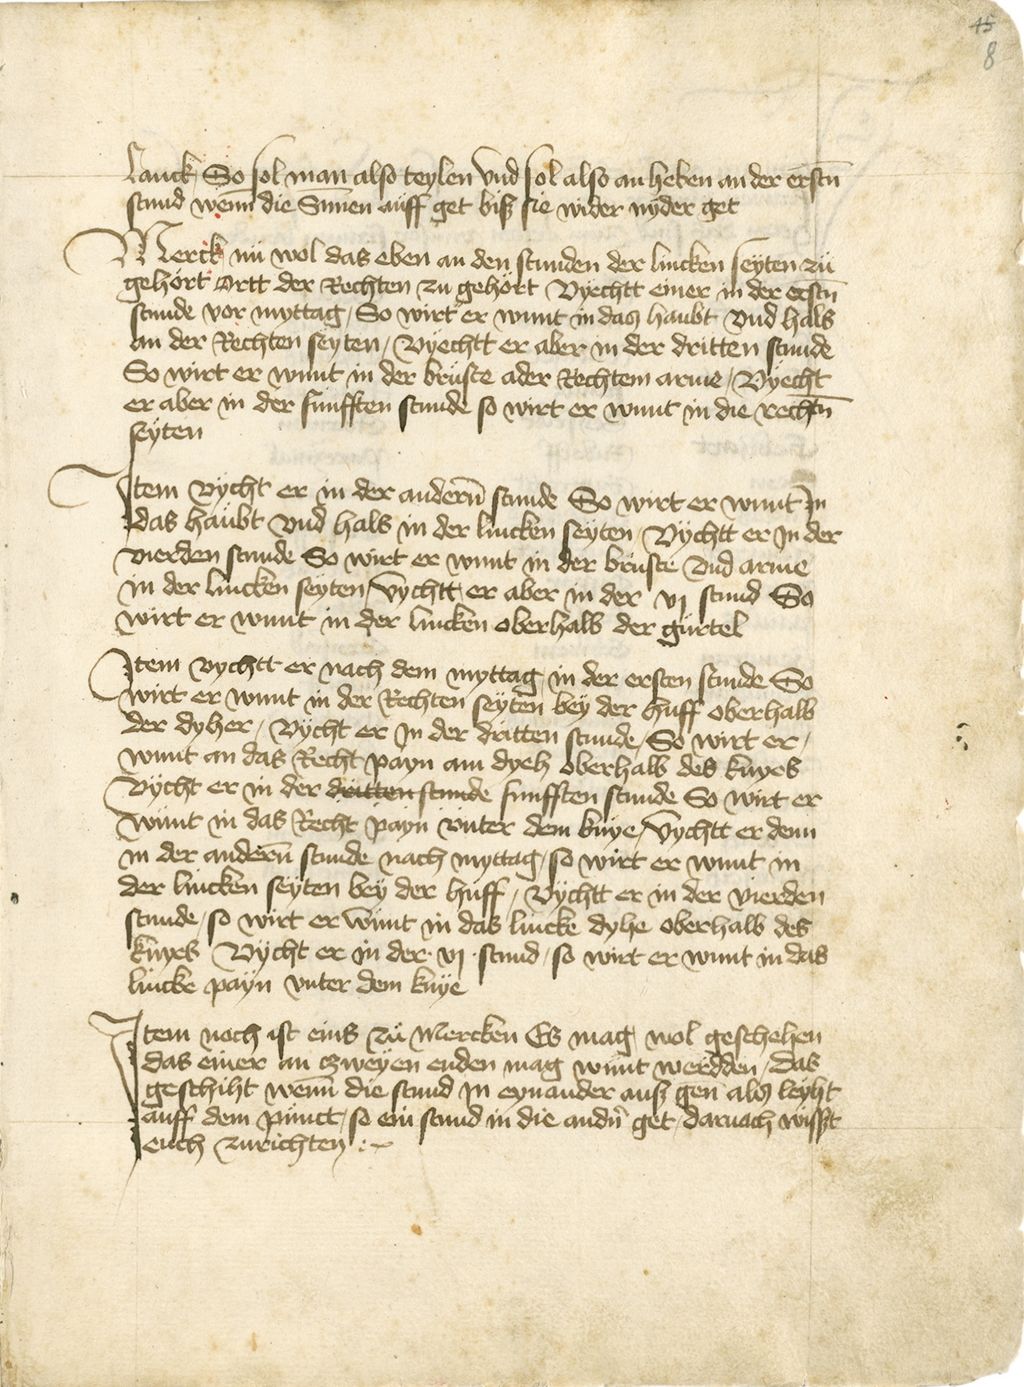 45
8
lanck So sol man also teylen vnd sol also an heben an der erstn̄
stund wenn die Sunnen auff get biß sie wider nyder get
Merck nü wol das eben an den stunden der lincken seyten zü
gehört Ortt der Rechten zu gehört Vyechtt einer in der erstn̄
stunde vor myttag / So wirt er wunt in das haubt vnd hals
an der Rechten seyten / Vyechtt er aber in der dritten stunde
So wirt er wunt in der brüste ader Rechtem arme / Vyecht
er aber in der funfften stunde so wirt er wunt in die rechtn̄
seyten
Item vycht er in der andern̄ stunde So wirt er wunt In
das haubt vnd hals in der lincken seyten / Vychtt er In der
vierden stunde So wirt er wunt in der brüste vnd arme
in der lincken seyten / Vychtt er aber in der vj stund So
wirt er wunt in der lincken oberhalb der gürtel
Item vychtt er nach dem myttag in der ersten stunde So
wirt er wunt in der Rechten seyten bey der huff oberhalb
der dyher / Vycht er In der dritten stunde / So wirt er /
wunt an das Recht payn am dyeh oberhalb des knyes
Vycht er in der dritten stunde funfften stunde So wirt er
wunt in das Recht payn vnter dem knye / Vychtt er denn
in der andern̄ stunde nach myttag / so wirt er wunt in
der lincken seyten bey der huff / Vychtt er in der vierden
stunde / so wirt er wunt in das lincke dyhe oberhalb des
knyes Vycht er in der · vj · stund / so wirt er wunt in das
lincke payn vnter dem knye
Item noch ist eins zü Mercken Es mag wol geschehen
das einer an czweyen enden mag wunt werdden / Das
geschiht wenn die stund in eynander auß gen als leyht
auff dem punct / so ein stund in die andn̄ get / darnach wisßt
euch zurichten :~